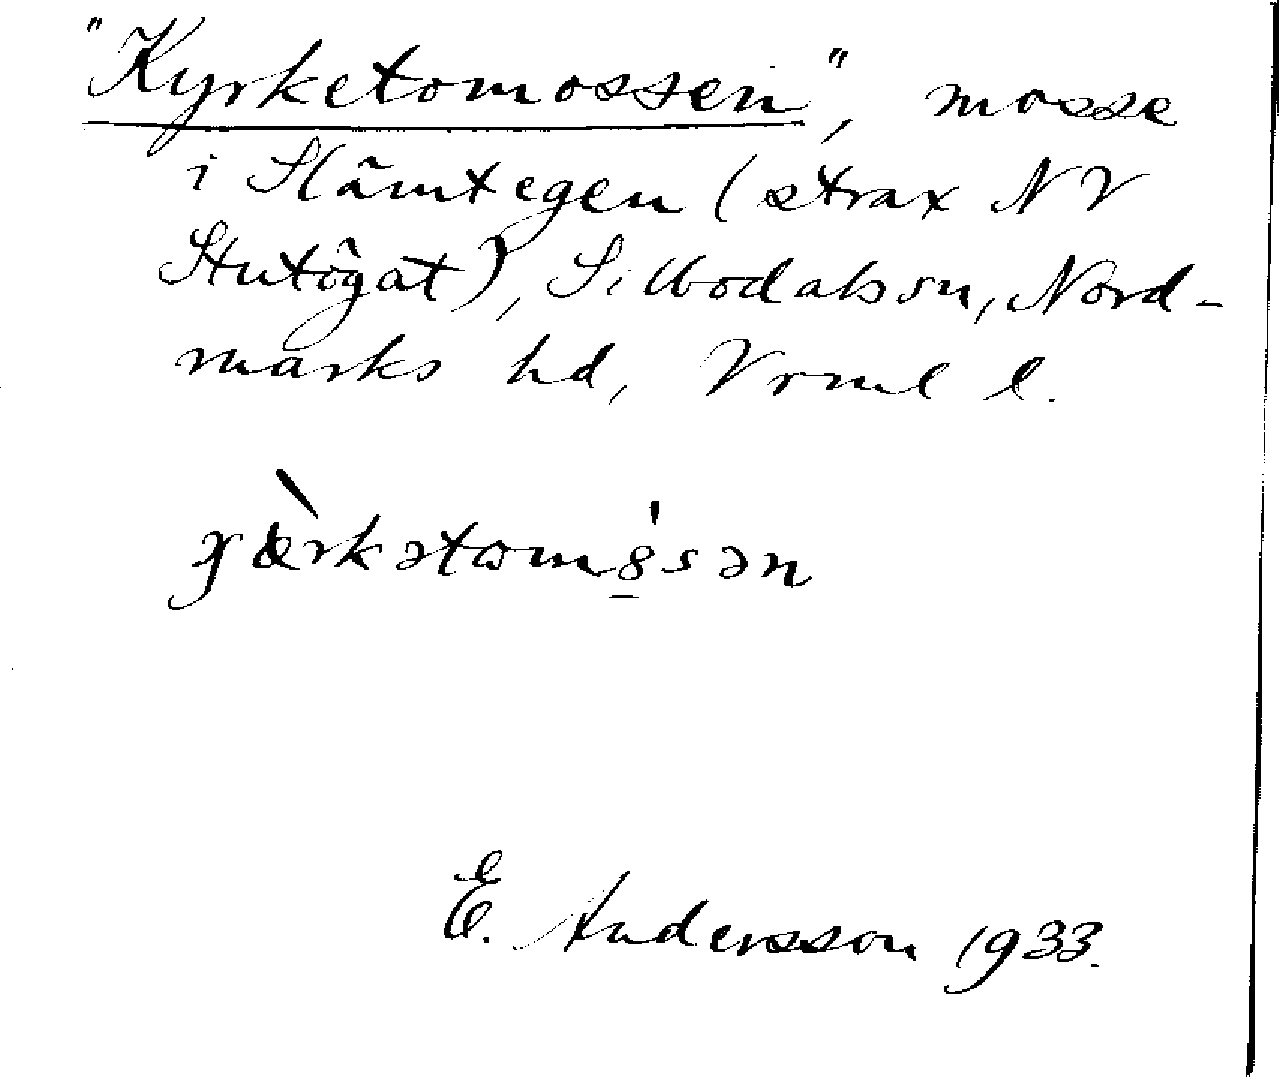 "Kyrketomossen", mosse
i Slämtegen (strax NV
Stutögat), Silbodalssn, Nord-
marks hd, Vrml l.
E. Andersson 1933.